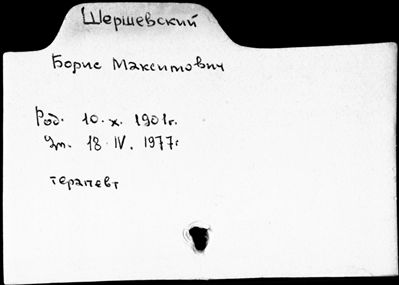 Шершевский
Борис Максимович
Род. 10.х.1901г.
Ум. 18.IV.1977г
терапевт